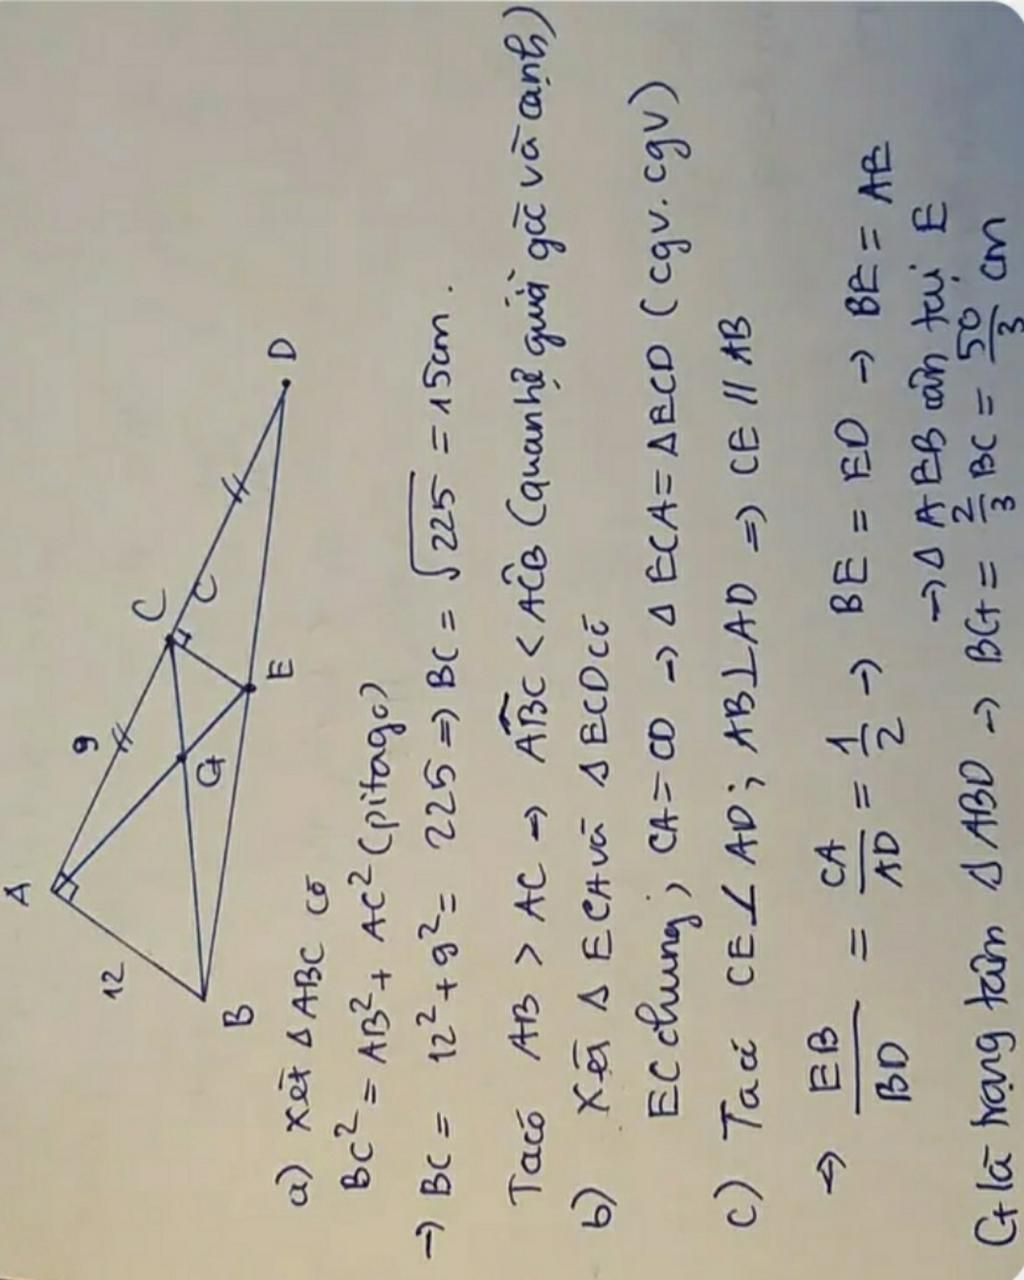 A
9
C
12
G
C
D
B
E
a) xét Δ ABC có
BC² = AB² + AC² (pitago)
→ BC = 12² + 9² = 225 ⇒ BC = √225 = 15cm.
Ta có AB > AC ⇒ ABC < ACB (quan hệ giữa góc và cạnh)
b) Xét Δ ECA và Δ ECD có
EC chung; CA = CD → Δ ECA = Δ ECD (cgv. cgv)
c) Ta có CE ⊥ AD; AB ⊥ AD ⇒ CE // AB
⇒ EB/BD = CA/AD = 1/2 → BE = ED → BE = AE
→ Δ AEB cân tại E
G là trọng tâm Δ ABD → BG = 2/3 BC = 50/3 cm